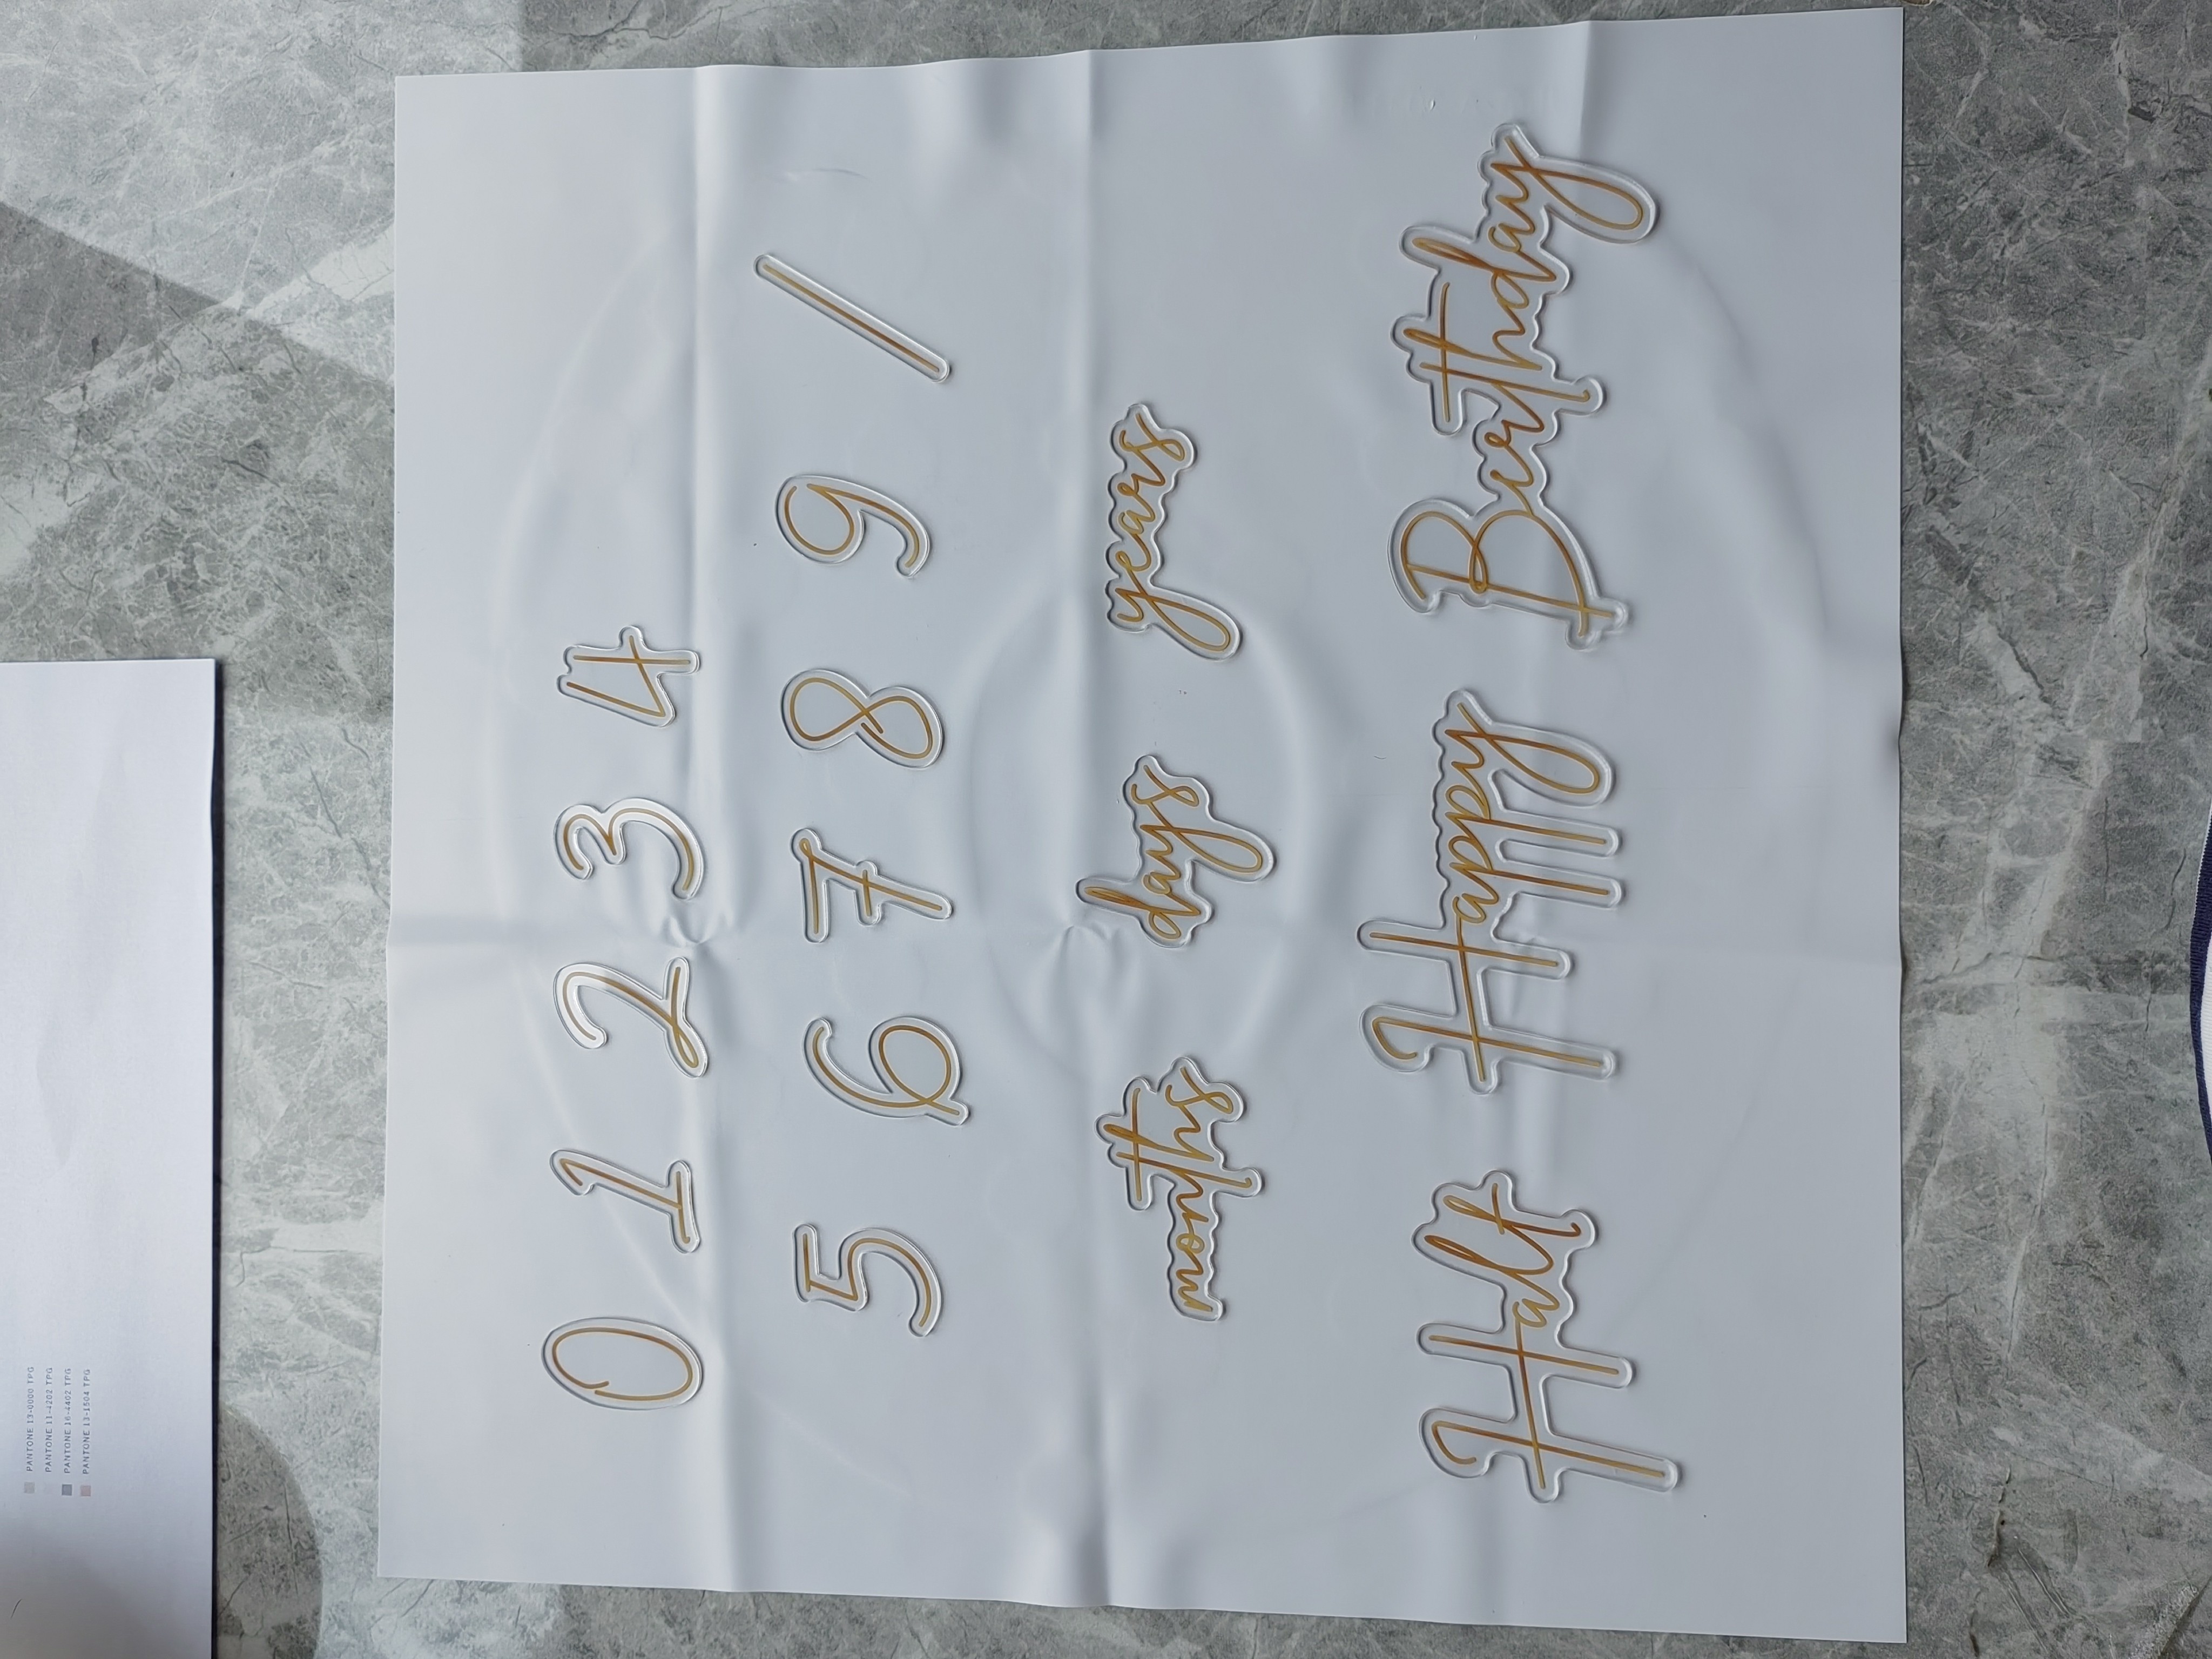 0 1 2 3 4
5 6 7 8 9 /
months days years
Half Happy Birthday
PANTONE 13-0000 TPG
PANTONE 11-4202 TPG
PANTONE 16-4402 TPG
PANTONE 13-1504 TPG